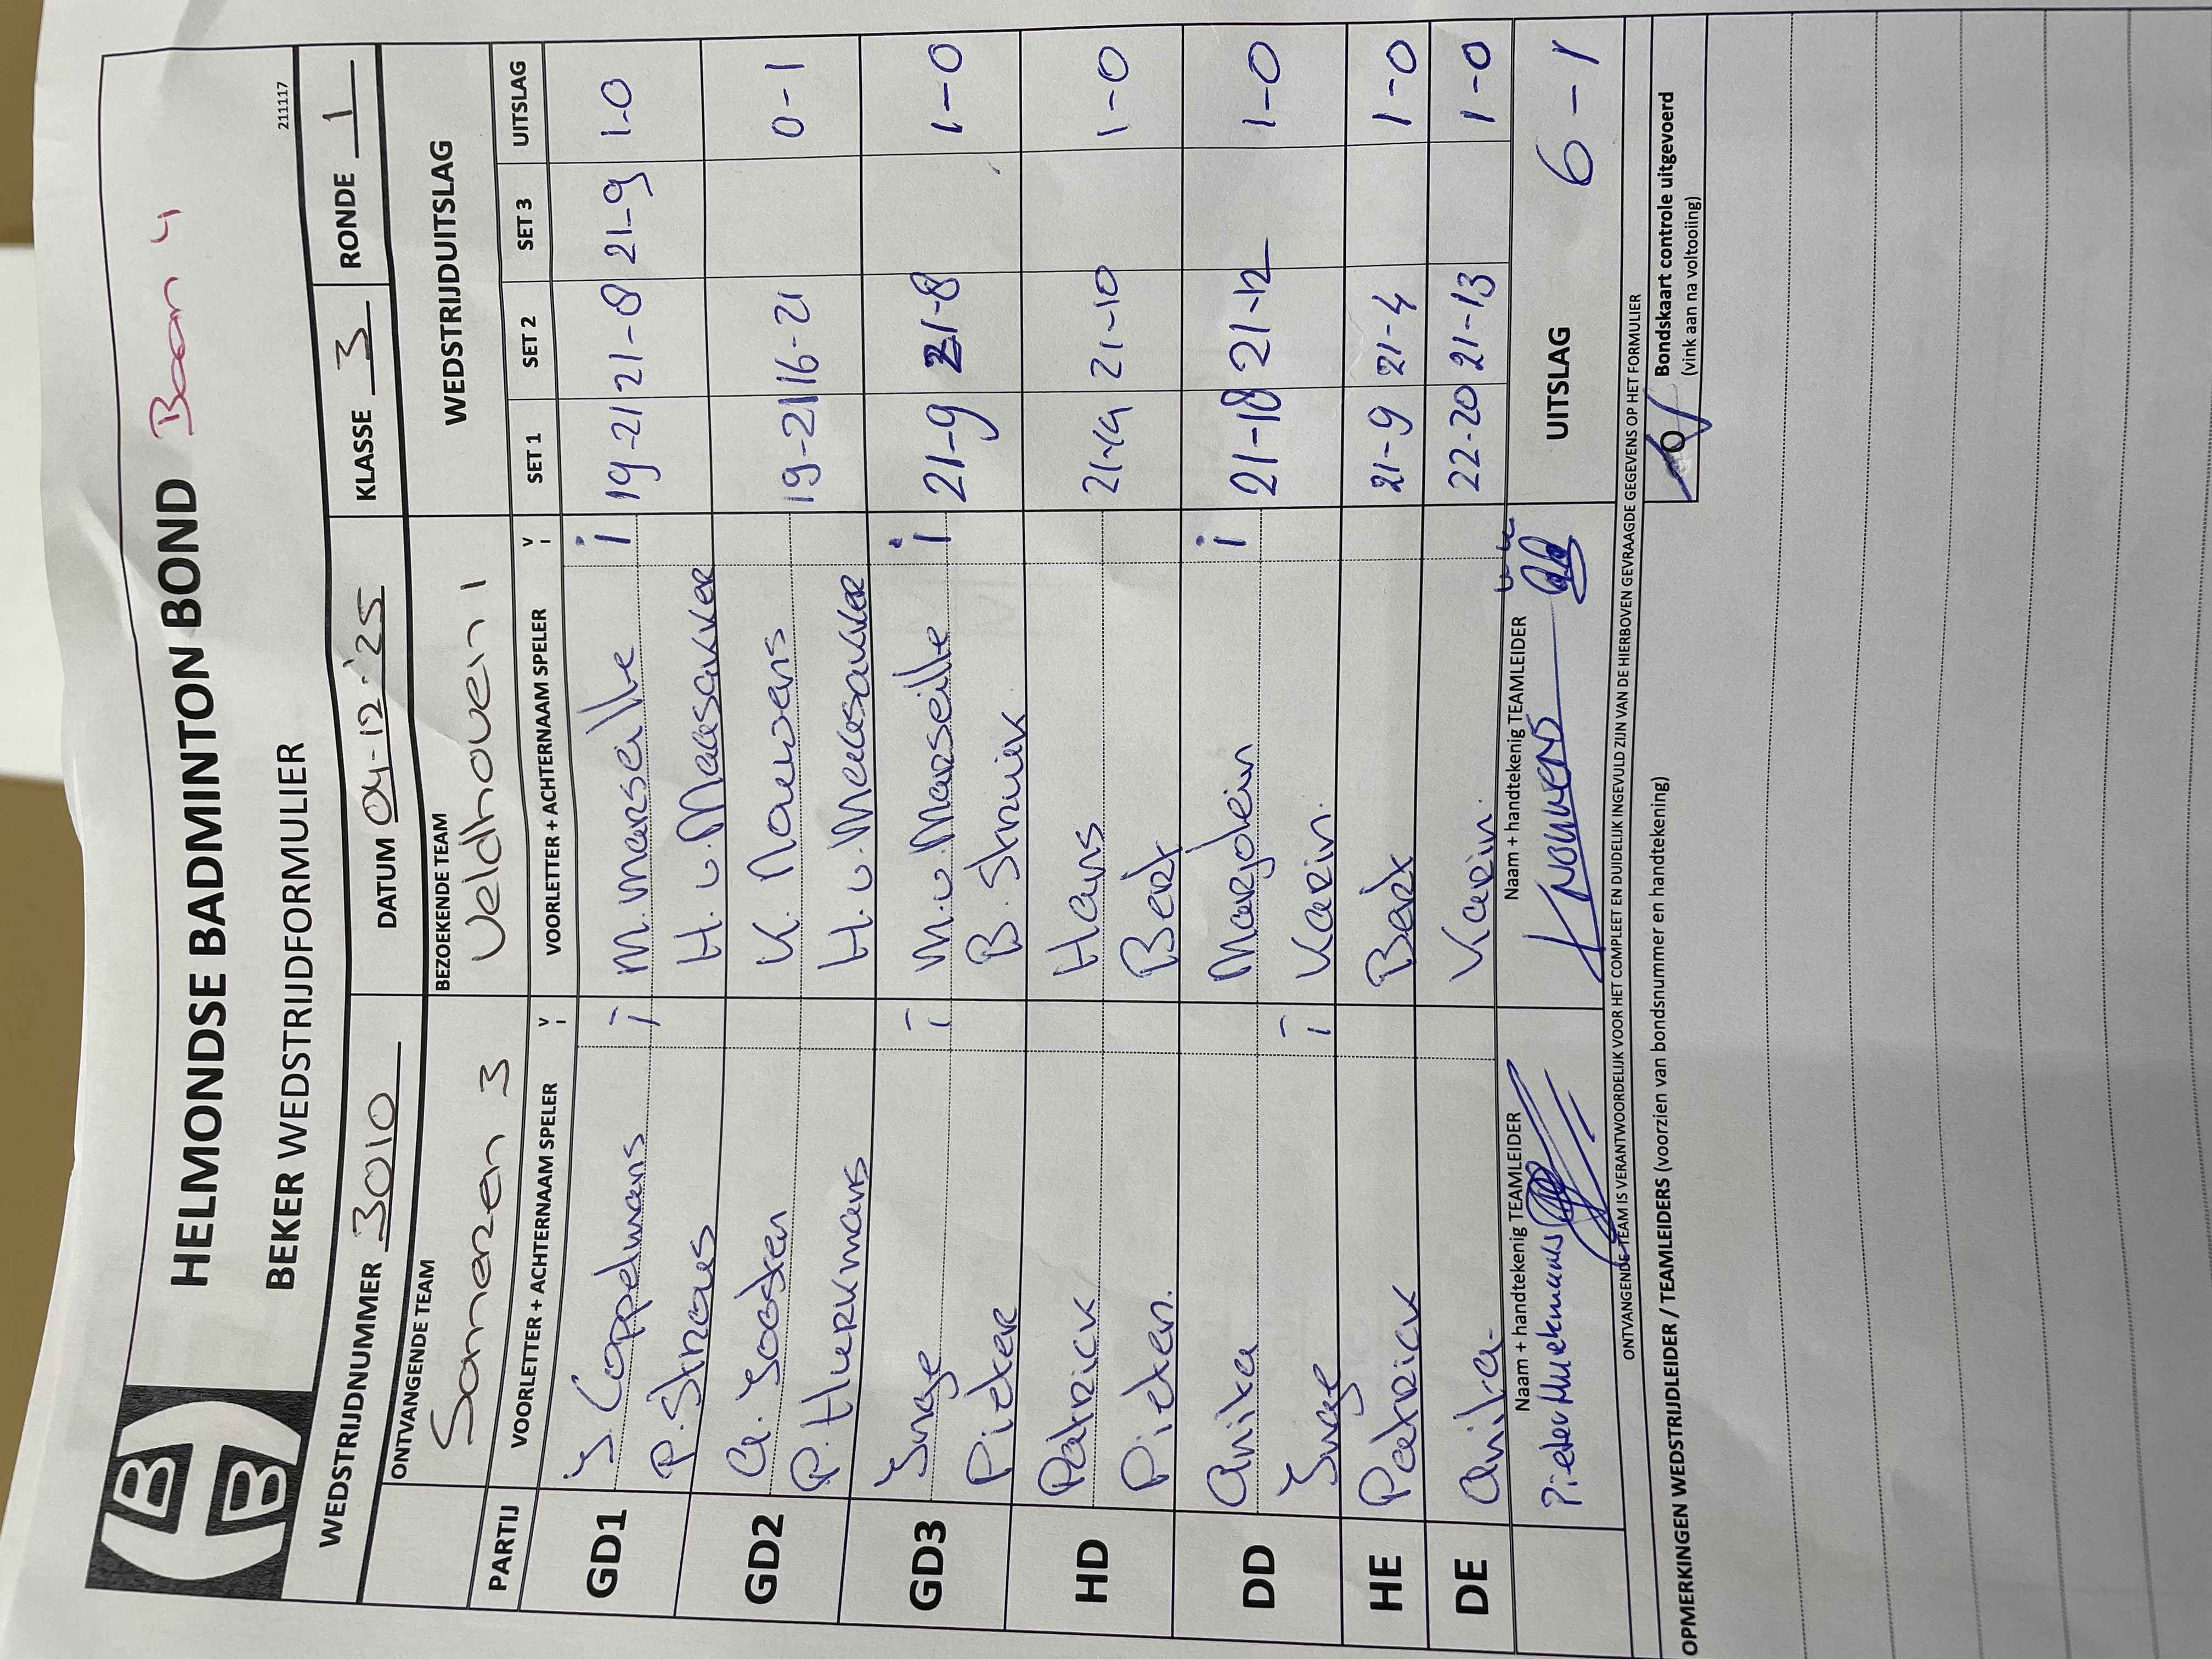 HELMONDSE BADMINTON BOND Baan 4
BEKER WEDSTRIJDFORMULIER
211117
WEDSTRIJDNUMMER 3010 DATUM 04-12-'25 KLASSE 3 RONDE 1
ONTVANGENDE TEAM BEZOEKENDE TEAM WEDSTRIJDUITSLAG
Someren 3 Veldhoven 1
PARTIJ VOORLETTER + ACHTERNAAM SPELER V I VOORLETTER + ACHTERNAAM SPELER V I SET 1 SET 2 SET 3 UITSLAG
GD1 I. Coppelmans i M. v Marseille i 19-21 21-8 21-9 1-0
P. Straus H. v. Maasakker
GD2 A. Joosten K. Nouwens 19-21 16-21 0-1
P. Hurkmans H. v. Maasakker
GD3 Inge i M. v. Marseille i 21-9 21-8 1-0
Pieter B. Struik
HD Patrick Hans 21-19 21-10 1-0
Pieter. Bert
DD Anika Marjolein i 21-18 21-12 1-0
Inge i Karin.
HE Patrick Bert 21-9 21-4 1-0
DE Anika Karin. 22-20 21-13 1-0
Naam + handtekenig TEAMLEIDER Naam + handtekenig TEAMLEIDER UITSLAG 6-1
Pieter Hurkmans K Nouwens
ONTVANGENDE TEAM IS VERANTWOORDELIJK VOOR HET COMPLEET EN DUIDELIJK INGEVULD ZIJN VAN DE HIERBOVEN GEVRAAGDE GEGEVENS OP HET FORMULIER
OPMERKINGEN WEDSTRIJDLEIDER / TEAMLEIDERS (voorzien van bondsnummer en handtekening) O Bondskaart controle uitgevoerd
(vink aan na voltooiing)